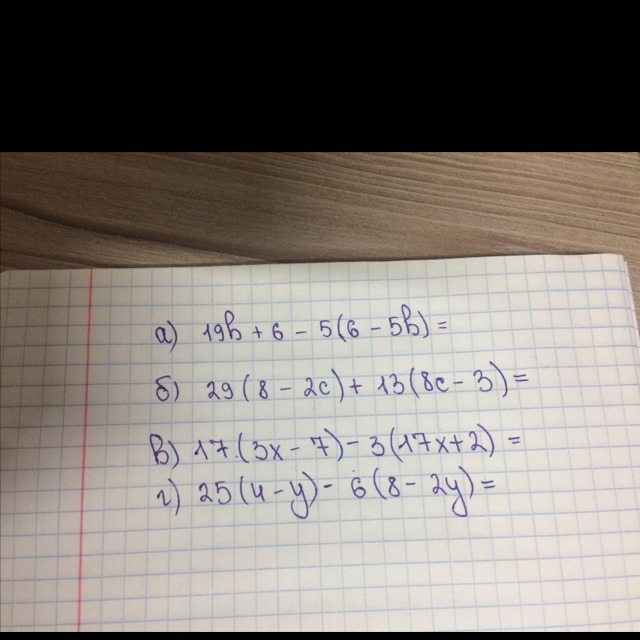 а) 19b + 6 - 5(6 - 5b) =
б) 29(8 - 2c) + 13(8c - 3) =
в) 17.(3x - 7) - 3(17x + 2) =
г) 25(4 - y) - 6(8 - 2y) =